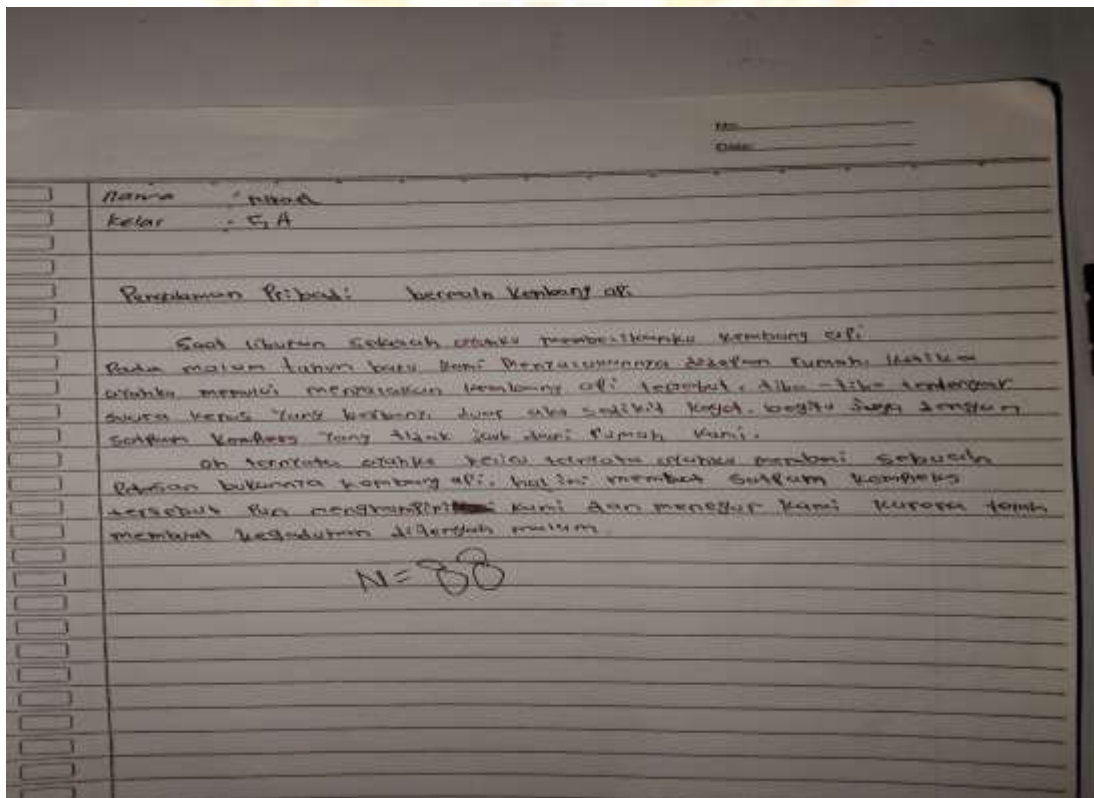 No.
Date:
nama :
kelas : 5 A
Pengalaman Pribadi: bermain kembang api
Saat liburan sekolah ayahku membelikanku kembang api
Pada malam tahun baru kami menyalakannya didepan rumah. ketika
ayahku memulai menyalakan kembang api tersebut, tiba-tiba terdengar
suara keras yang berbunyi duar aku sedikit kaget. begitu juga dengan
satpam kompleks yang tidak jauh dari rumah kami.
oh ternyata ayahku keliru ternyata ayahku membeli sebuah
Petasan bukannya kembang api. hal ini membuat satpam kompleks
tersebut pun menghampiri kami dan menegur kami karena telah
membuat kegaduhan ditengah malam.
N = 88